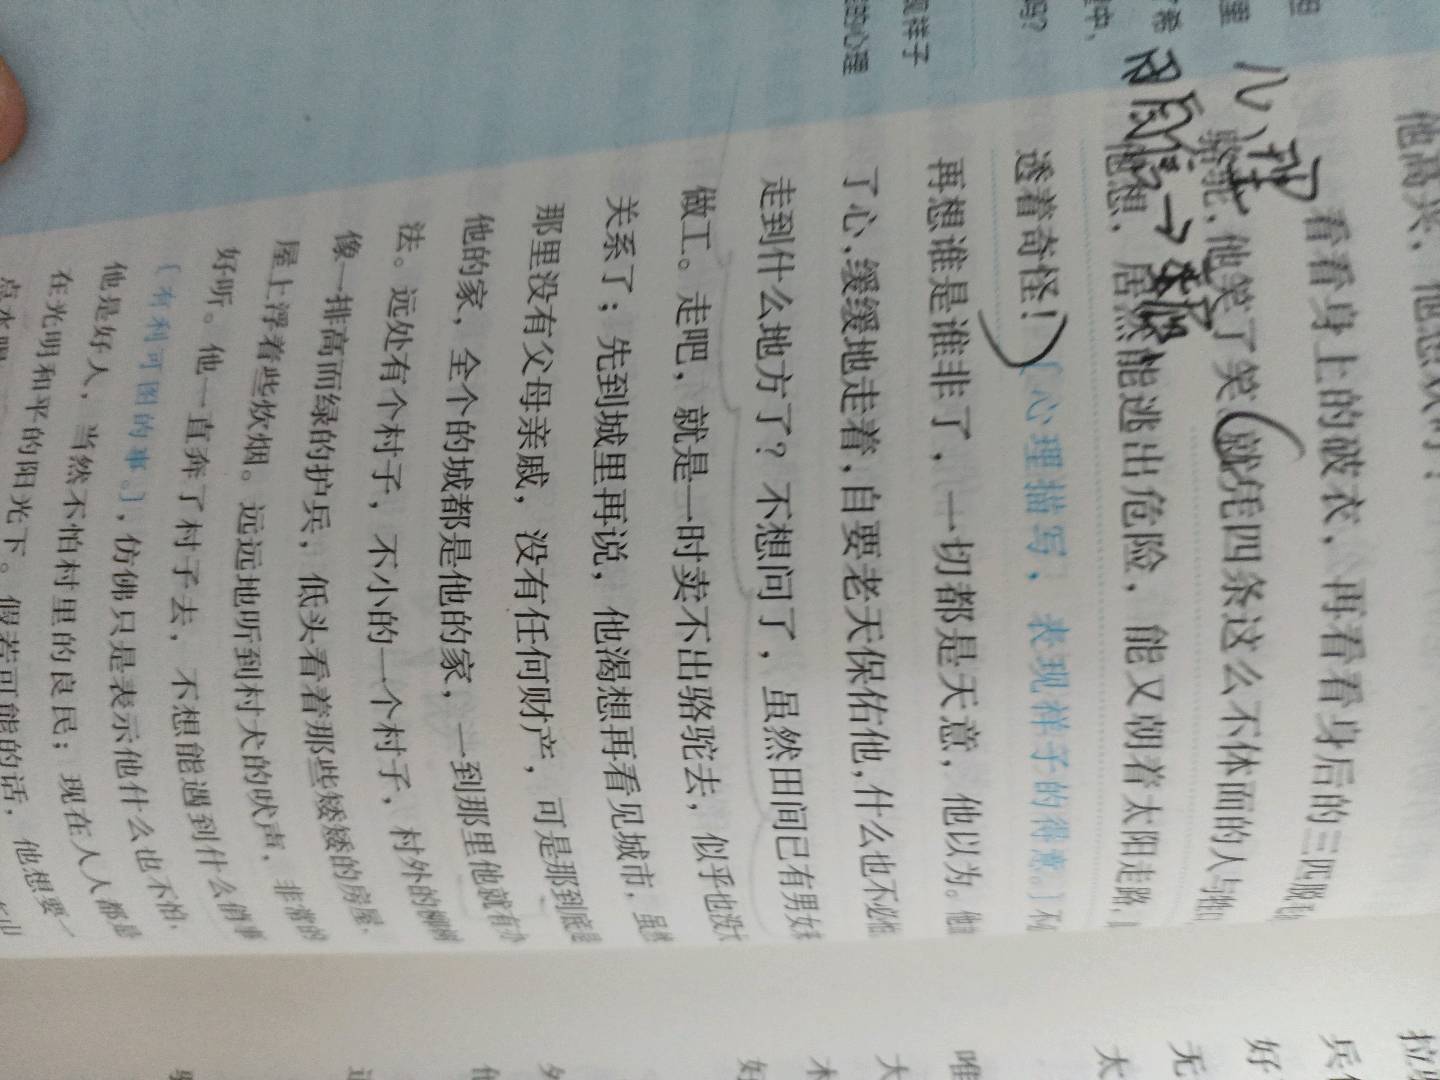 他高兴，他想
看看身上的破衣，再看看身后的三四
骆驼，他笑了笑。就凭四条这么不体面的人与牲口
他想，居然能逃出危险，能又朝着太阳走路，
透着奇怪！〔心理描写，表现祥子的得意。〕不
再想谁是谁非了，一切都是天意，他以为。他
了心，缓缓地走着，自要老天保佑他，什么也不必怕
走到什么地方了？不想问了，虽然田间已有男女
做工。走吧，就是一时卖不出骆驼去，似乎也没
关系了；先到城里再说，他渴想再看见城市，虽然
那里没有父母亲戚，没有任何财产，可是那到底是
他的家，全个的城都是他的家，一到那里他就有办
法。远处有个村子，不小的一个村子，村外的柳树
像一排高而绿的护兵，低头看着那些矮矮的房屋，
屋上浮着些炊烟。远远地听到村犬的吠声，非常的
好听。他一直奔了村子去，不想能遇到什么俏事
〔有利可图的事。〕，仿佛只是表示他什么也不怕，
他是好人，当然不怕村里的良民；现在人人都是
在光明和平的阳光下。假若可能的话，他想要一
点水喝
里
希
中，
吗？
现祥子
的心理
八、挫
好
无
太
唯
大
木
好